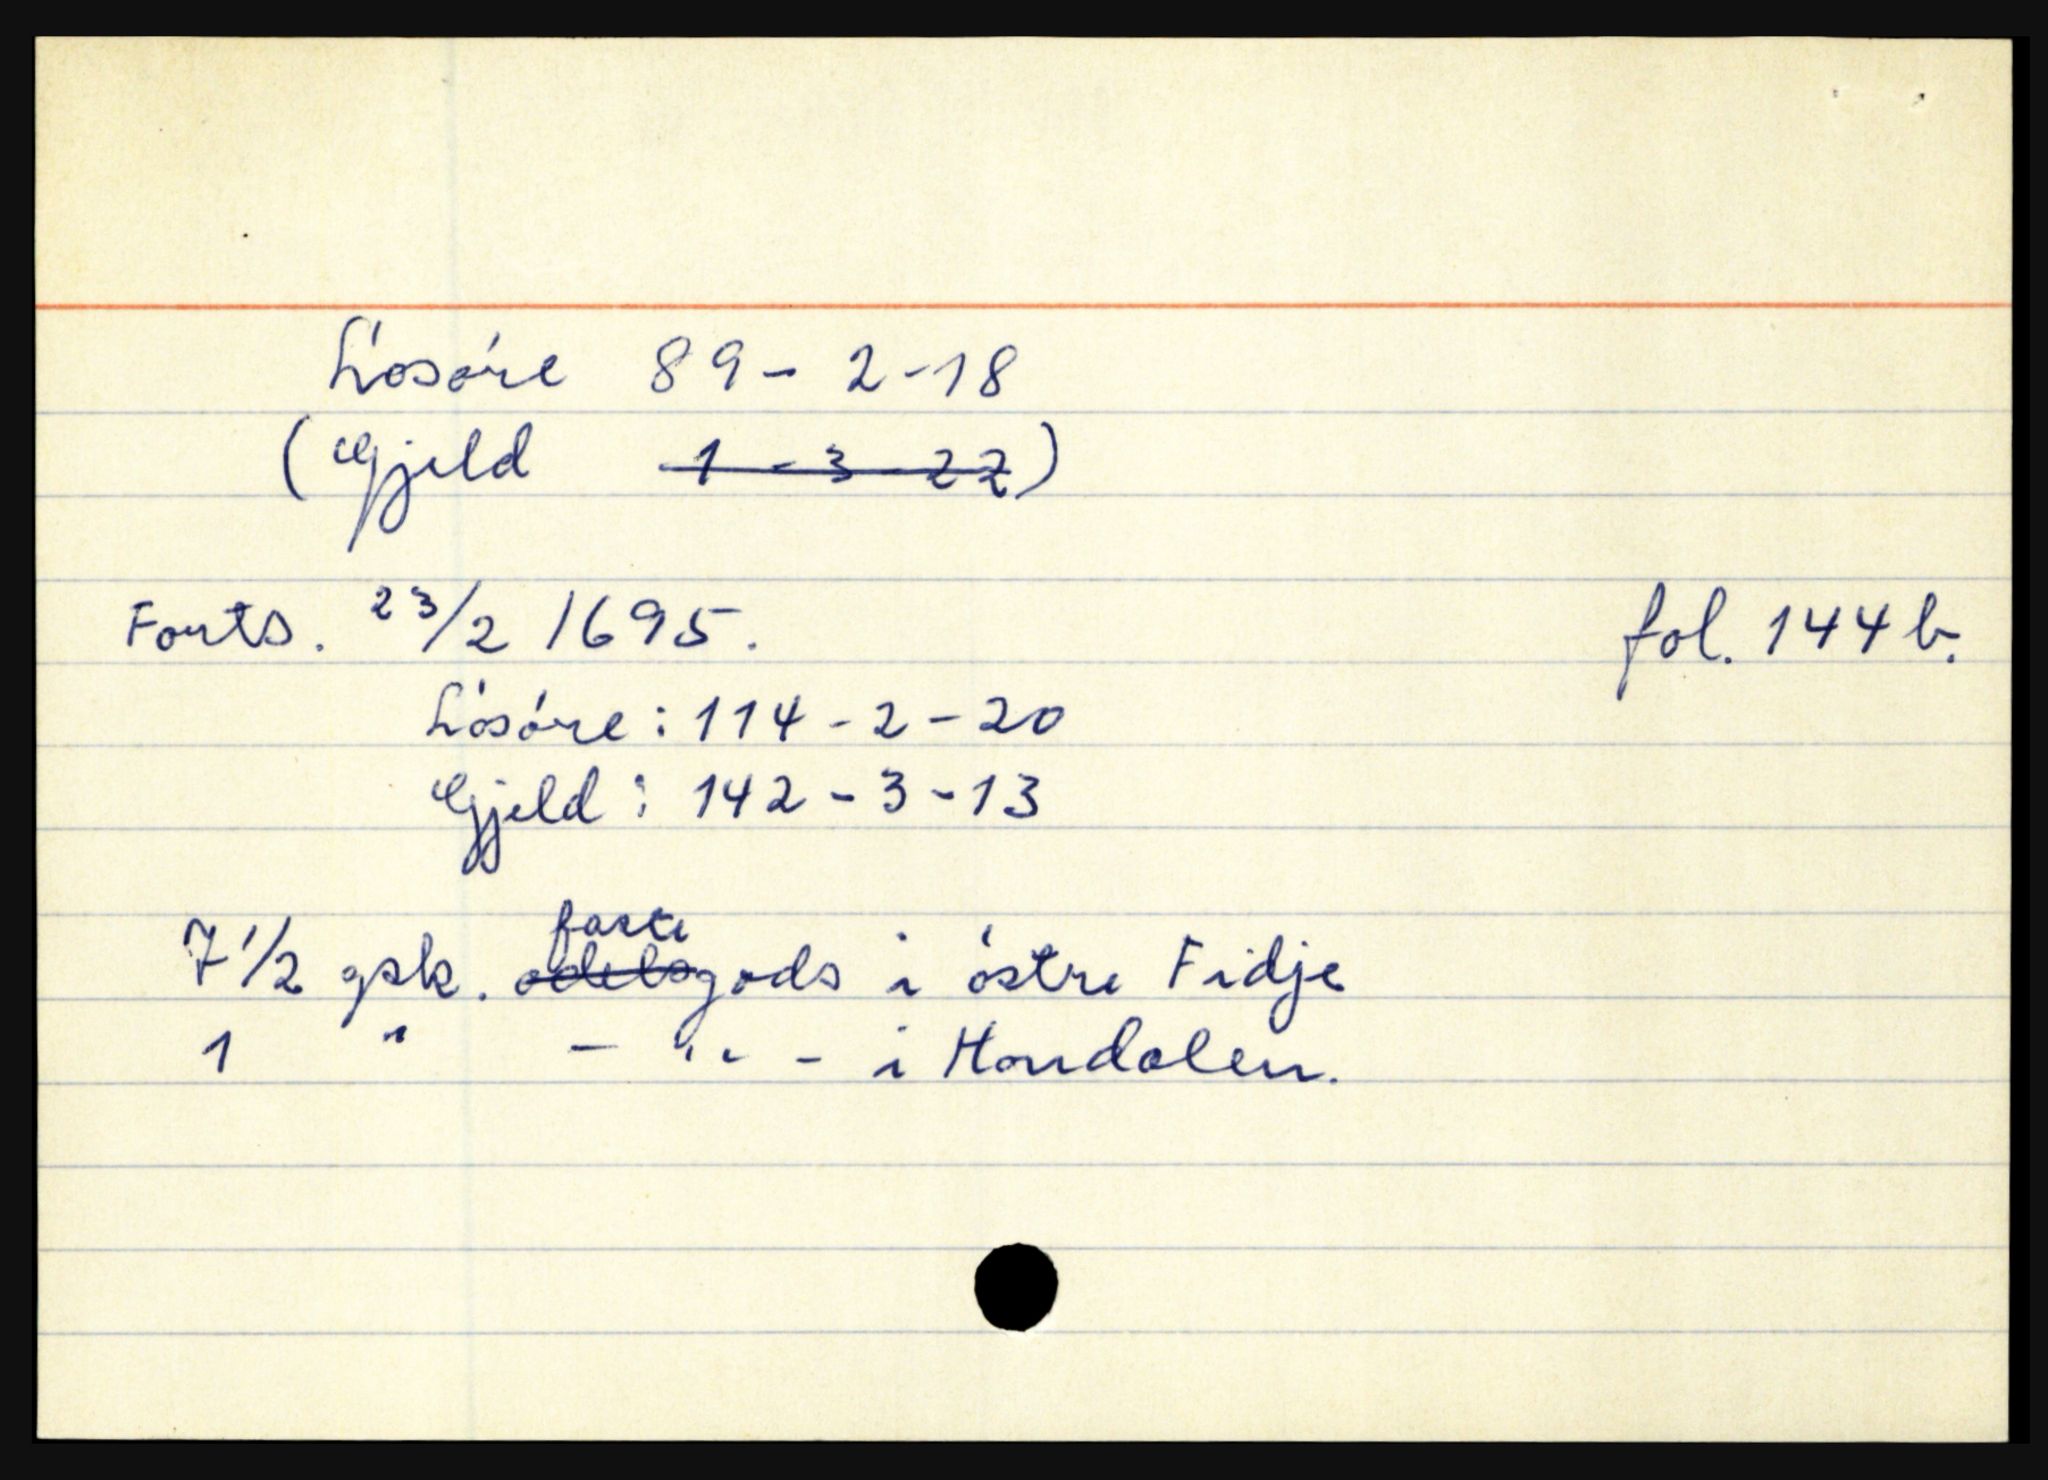 Lösöre 89 - 2 - 18
(Gjeld 1 - 3 - 22)
Forts. 23/2 1695. fol. 144 b.
Lösöre: 114 - 2 - 20
Gjeld: 142 - 3 - 13
faste
7 1/2 gsk. odelsgods i östre Fidje
1 " - " - i Hondalen.